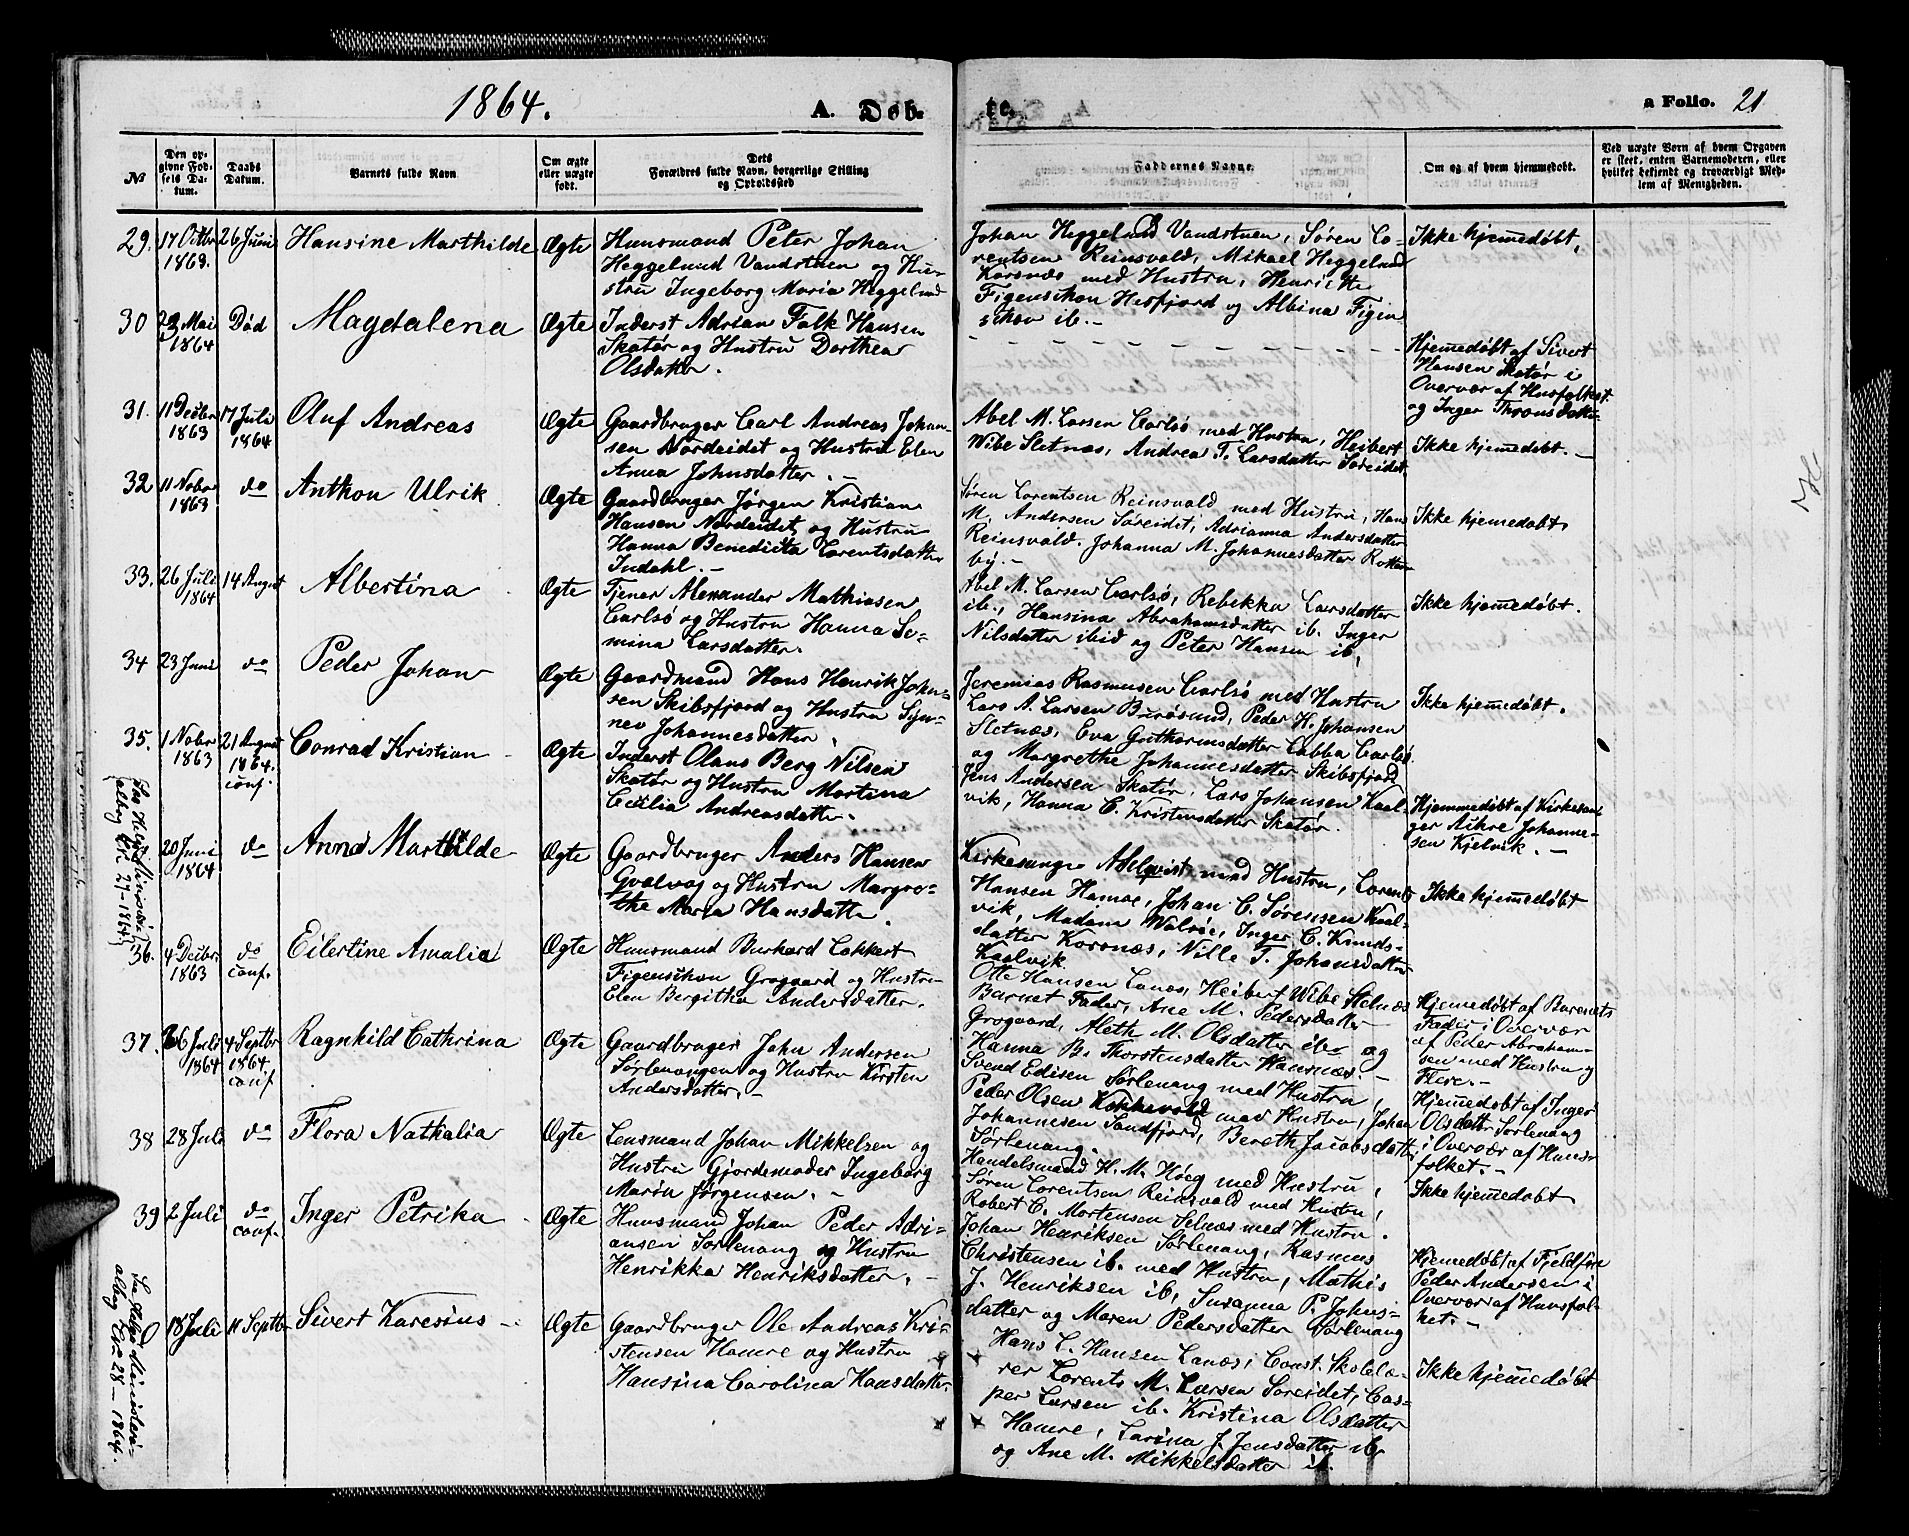 1864.
A. Døb-
te.
a Folio. 21
№
Den op-
givne Fød-
sels Da-
tum.
Daabs
Datum.
Barnets fulde Navn
Om ægte
eller uægte
født.
Dets
Forældres fulde Navn, borgerlige Stilling
og Opholdssted
Faddernes Navne.
Om og af hvem hjemmedøbt.
Ved uægte Børn af hvem Opgaven
er skeet, enten Barnemoderen, eller
hvilket bekjendt og troværdigt Med-
lem af Menigheden.
29. 17 Octbr 1863. 26 Juni Hansine Marthilde Ægte
Huusmand Peter Johan
Heggelund Vandstuen og Hu-
stru Ingeborg Maria Heggelund
Johan Heggelund Vandstuen, Søren Lo-
rentsen Reinsvold, Mikael Heggelund
Korsnæs med Hustru, Henrikke
Figenschou Hesfjord og Albina Figen
schou ib. -
Ikke hjemmedøbt.
30 23 Mai 1864 Død Magdalena Ægte
Inderst Adrian Falk Hansen
Skatør og Hustru Dorthea
Olsdatter.
Hjemmedøbt af Sivert
Hansen Skatør i
Overvær af Husfolket
og Inger Thronsdatter
31. 11 Decbr 1863 17 Juli 1864 Oluf Andreas Ægte
Gaardbruger Carl Andreas Johan-
sen Nordeidet og Hustru Elen
Anna Johnsdatter. -
Abel M. Larsen Carlsø med Hustru, Heibert
Wibe Sletnæs, Andrea T. Larsdatter Søreidet.
Ikke hjemmedøbt. -
32 11 Nobr 1863 do Anthon Ulrik Ægte
Gaardbruger Jørgen Kristian
Hansen Nordeidet og Hustru
Hanna Benedicta Lorentsdatter
Indahl. -
Søren Lorentsen Reinsvold med Hustru, Hans
M. Andersen Søreidet, Adrianna Andersdatter
Reinsvold. Johanna M. Johannesdatter Rotten
by. -
Ikke hjemmedøbt
33. 26 Juli 1864 14 August Albertina Ægte
Tjener Alexander Mathiasen
Carlsø og Hustru Hanna Se-
mina Larsdatter.
Abel M. Larsen Carlsø, Rebekka Larsdatter
ib., Hansina Abrahamsdatter ib. Inger
Nilsdatter ibid og Peter Hansen ib.
Ikke hjemmedøbt.
34 23 Juni do Peder Johan Ægte
Gaardmand Hans Henrik John-
sen Skibsfjord og Hustru Syn-
nev Johannesdatter.
Jeremias Rasmusen Carlsø med Hustru
Lars A. Larsen Burøsund, Peder H. Johansen
Sletnæs, Eva Guthormsdatter Labba Carlsø
og Margrethe Johannesdatter Skibsfjord
Ikke hjemmedøbt.
35. 1 Nobr 1863 21 August 1864. conf. Conrad Kristian Ægte
Inderst Olaus Berg Nilsen
Skatør og Hustru Martina
Cecilia Andreasdatter.
Jens Andersen Skatør, Lars Johansen Kaal-
vik, Hanna C. Kristensdatter Skatør.
Hjemmedøbt af Kirkesan
ger Johanne-
sen Kjelvik. -
20 Juni 1864 do Anna Marthilde Ægte
Gaardbruger Anders Hansen
Gvalvag og Hustru Margre-
the Maria Hansdatter.
Kirkesanger med Hustru, Lorents
Hansen Hamre, Johan C. Sørensen Kaal-
vik, Madam Walsøe, Inger C. Knuds-
datter Korsnæs, Nille T. Johansdatter
Kaalvik
Ikke hjemmedøbt
Se Helgø Ministeri-
albog No. 27-1864
36. 4 Decbr 1863 do conf. Eilertine Amalia Ægte
Huusmand Burhard Lokkert
Figenschou Grogaard og Hustru
Elen Bergitha Andersdatter.
Otte Hansen Lanes, Heibert Wibe Sletnæs
Barnet Fader, Ane M. Pedersdatter
Grogaard, Aleth M. Olsdatter ib. og
Hanna B. Thorstensdatter Hansnæs. -
Hjemmedøbt af Barnets
Fader i Overvær
af Peder Abraham-
sen med Hustru og
Flere. -
37. 26 Juli 1864 4 Septbr 1864 conf Ragnhild Cathrina Ægte
Gaardbruger John Andersen
Sørlenangen og Hustru Kirsten
Andersdatter.
Svend Edisen Sørlenang med Hustru,
Peder Olsen Kokkevold med Hustru, Johan
Johannesen Sandfjord, Bereth Jacobsdatt
Sørlenang.
Hjemmedøbt af Inger
Olsdatter Sørlenang
i Overvær af Huus-
folket. -
38 28 Juli do Flora Nathalia Ægte
Lensmand Johan Mikkelsen og
Hustru Gjordemoder Ingeborg
Maria Jørgensen. -
Handelsmand H. M. Høeg med Hustru,
Søren Lorentsen Reinsvold med Hustru,
Robert C. Mortensen Selnæs med Hustru.
Ikke hjemmedøbt
39 2 Juli do conf. Inger Petrika Ægte
Huusmand Johan Peder Adri-
ansen Sørlenang og Hustru
Henrikka Henriksdatter. -
Johan Henriksen Sørlenang, Rasmus
Christensen ib. med Hustru, Mathis
J. Henriksen ib, Susanna P. Johns-
datter og Maren Pedersdatter Sørlenang
Hjemmedøbt af Fjeldfin
Peder Andersen i
Overvær af Huusfol-
ket. -
18 Juli 11 Septbr Sivert Karesius Ægte
Gaardbruger Ole Andreas Kri-
stensen Hamre og Hustru
Hansina Carolina Hansdatter.
Hans L. Hansen Lanæs, Const. Skolelæ-
rer Lorents M. Larsen Søreidet, Cas-
per Larsen ib. Kristina Olsdatter
Hamre, Larina J. Jensdatter ib
og Ane M. Mikkelsdatter ib.
Ikke hjemmedøbt
Se Helgø Ministeri-
albog No. 28-1864.